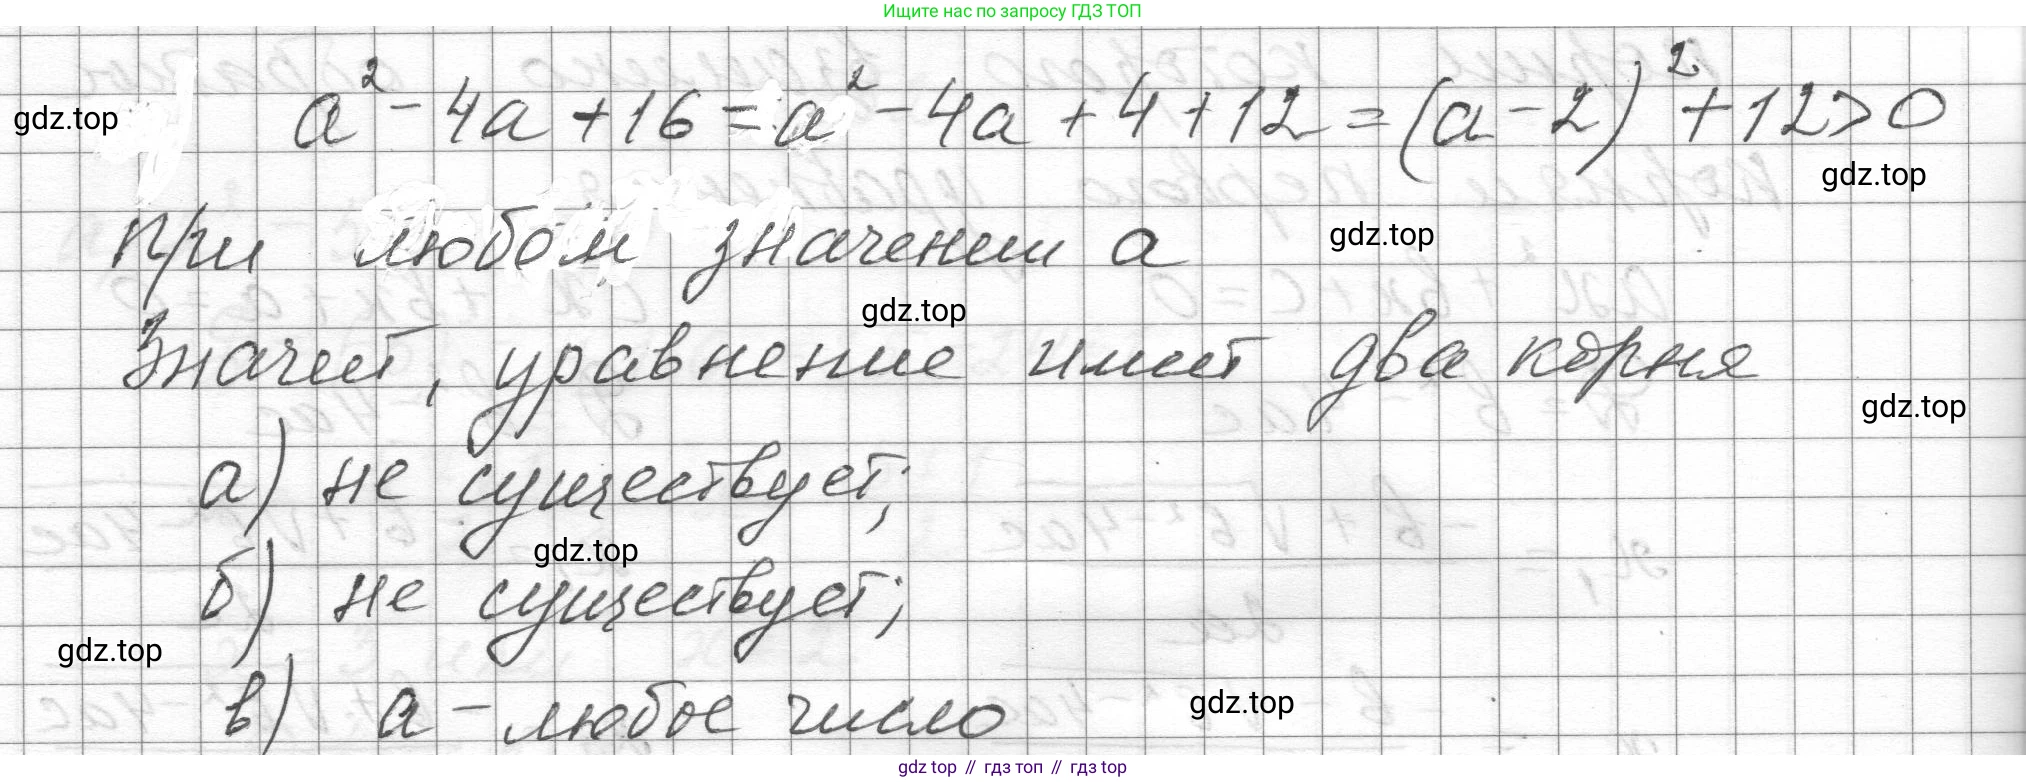 Ищите нас по запросу ГДЗ ТОП
a² - 4a + 16 = a² - 4a + 4 + 12 = (a - 2)² + 12 > 0
gdz.top
gdz.top
при любом значении a
gdz.top
gdz.top
Значит, уравнение имеет два корня
gdz.top
а) не существует;
gdz.top
б) не существует;
gdz.top
в) a - любое число
gdz.top
gdz top // гдз топ // гдз top